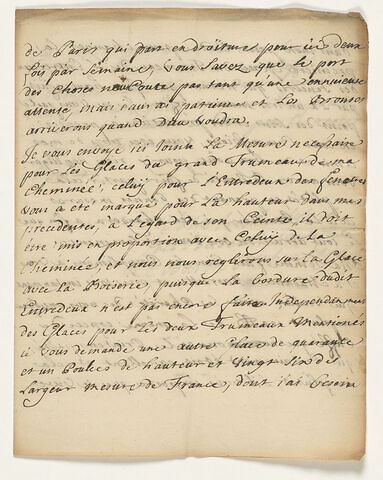 de Paris qui part en droiture pour ici deux
fois par Semaine, Vous Savez que le port
des Choses ne Coute pas tant qu'une ennuieuse
attente, mais et Les Bronses
arriverons quand Dieu Voudra.
Je vous envoye ici Jointe La Mesure necessaire
pour les Glaces du grand Trumeau de ma
Cheminée, celuy pour L'Entredeux des fenetres
Vous a été marqué pour La hauteur dans mes
precedentes, a L'egard de son Ceintre il doit
être mis en proportion avec Celuy de la
Cheminée, et nous nous reglerons sur la Glace
avec la Boiserie, puisque La bordure dudit
Entredeux n'est pas encore faite. Independament
des Glaces pour les deux Trumeaux Mentionés
je Vous demande une autre Glace de quarante
et un Pouces de hauteur et Vingt Six de
Largeur mesure de France, dont j'ai besoin